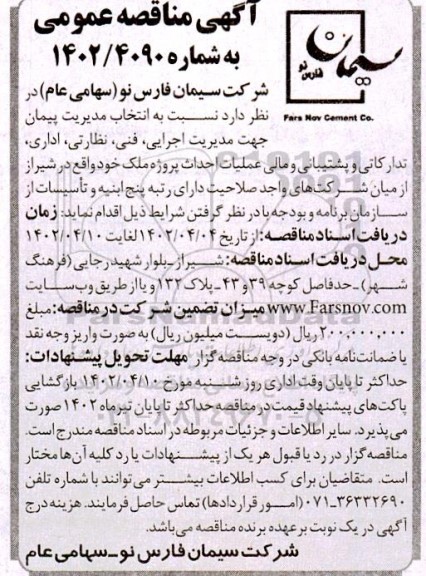 آگهی مناقصه عمومی
به شماره ۱۴۰۲/۴۰۹۰
سیمان
فارس نو
Fars Nov Cement Co.
شرکت سیمان فارس نو (سهامی عام) در
نظر دارد نسبت به انتخاب مدیریت پیمان
جهت مدیریت اجرایی، فنی، نظارتی، اداری،
تدارکاتی و پشتیبانی و مالی عملیات احداث پروژه ملک خود واقع در شیراز
از میان شرکت‌های واجد صلاحیت دارای رتبه پنج ابنیه و تأسیسات از
سازمان برنامه و بودجه با در نظر گرفتن شرایط ذیل اقدام نماید: زمان
دریافت اسناد مناقصه: از تاریخ ۱۴۰۲/۰۴/۰۴ لغایت ۱۴۰۲/۰۴/۱۰
محل دریافت اسناد مناقصه: شیراز-بلوار شهید رجایی (فرهنگ
شهر)-حدفاصل کوچه ۳۹ و ۴۳-پلاک ۱۳۲ و یا از طریق وب سایت
www.Farsnov.com میزان تضمین شرکت در مناقصه: مبلغ
۲۰۰,۰۰۰,۰۰۰ ریال (دویست میلیون ریال) به صورت واریز وجه نقد
یا ضمانت‌نامه بانکی در وجه مناقصه گزار مهلت تحویل پیشنهادات:
حداکثر تا پایان وقت اداری روز شنبه مورخ ۱۴۰۲/۰۴/۱۰ بازگشایی
پاکت‌های پیشنهاد قیمت در مناقصه حداکثر تا پایان تیرماه ۱۴۰۲ صورت
می‌پذیرد. سایر اطلاعات و جزئیات مربوطه در اسناد مناقصه مندرج است.
مناقصه گزار در رد یا قبول هر یک از پیشنهادات یا رد کلیه آن‌ها مختار
است. متقاضیان برای کسب اطلاعات بیشتر می‌توانند با شماره تلفن
۰۷۱-۳۶۳۳۲۶۹۰ (امور قراردادها) تماس حاصل فرمایند. هزینه درج
آگهی در یک نوبت بر عهده برنده مناقصه می‌باشد.
شرکت سیمان فارس نو-سهامی عام